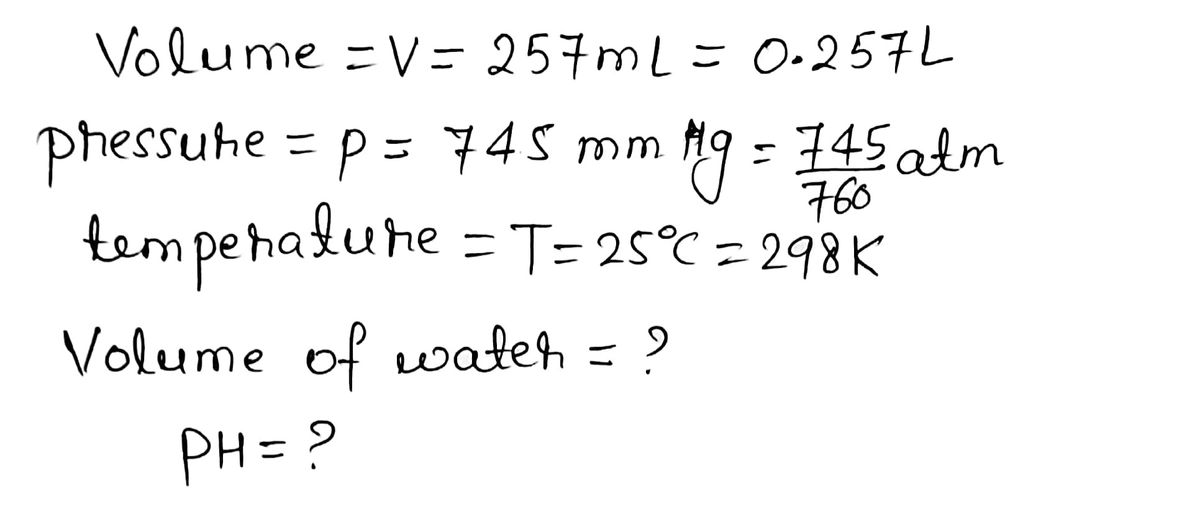 Volume = V = 257mL = 0.257L
pressure = p = 745 mm Hg = 745/760 atm
temperature = T = 25°C = 298K
Volume of water = ?
PH = ?